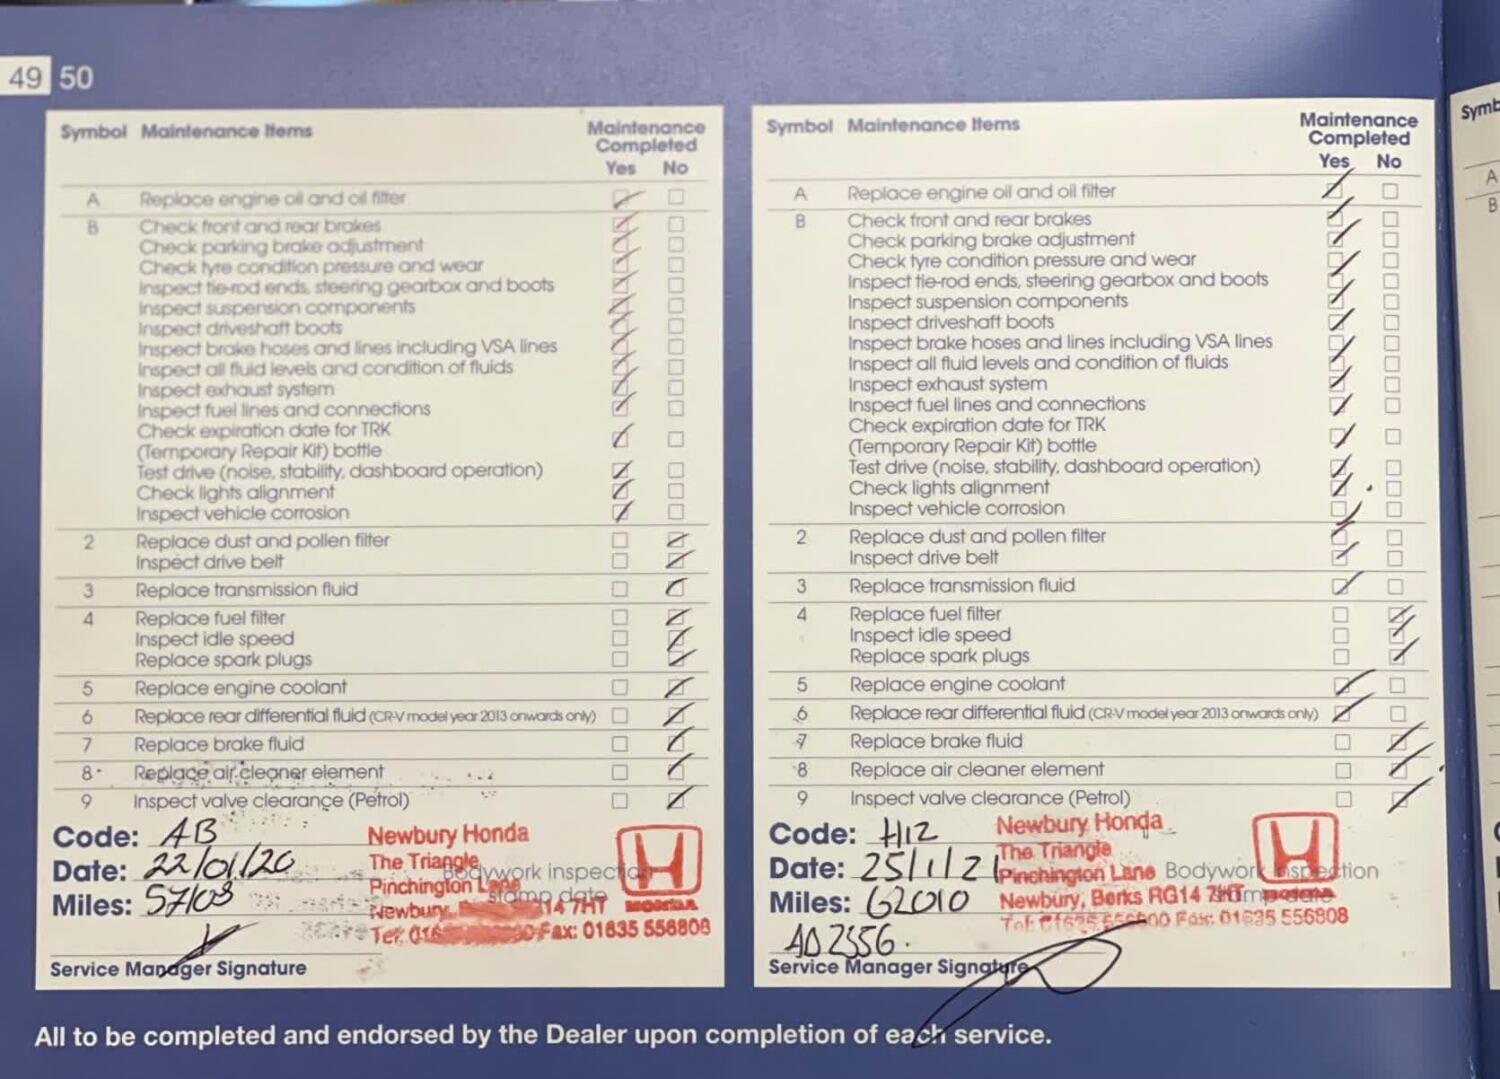 49 50
Symbol Maintenance Items Maintenance Completed Yes No
A Replace engine oil and oil filter
B Check front and rear brakes
Check parking brake adjustment
Check tyre condition pressure and wear
Inspect tie-rod ends, steering gearbox and boots
Inspect suspension components
Inspect driveshaft boots
Inspect brake hoses and lines including VSA lines
Inspect all fluid levels and condition of fluids
Inspect exhaust system
Inspect fuel lines and connections
Check expiration date for TRK
(Temporary Repair Kit) bottle
Test drive (noise, stability, dashboard operation)
Check lights alignment
Inspect vehicle corrosion
2 Replace dust and pollen filter
Inspect drive belt
3 Replace transmission fluid
4 Replace fuel filter
Inspect idle speed
Replace spark plugs
5 Replace engine coolant
6 Replace rear differential fluid (CR-V model year 2013 onwards only)
7 Replace brake fluid
8 Replace air cleaner element
9 Inspect valve clearance (Petrol)
Code: AB
Date: 22/01/20
Miles: 57103
Newbury Honda
The Triangle
Pinchington Lane
Newbury, 14 7HT
Tel: Fax: 01635 556808
Bodywork inspection
stamp date
HONDA
Service Manager Signature
Symbol Maintenance Items Maintenance Completed Yes No
A Replace engine oil and oil filter
B Check front and rear brakes
Check parking brake adjustment
Check tyre condition pressure and wear
Inspect tie-rod ends, steering gearbox and boots
Inspect suspension components
Inspect driveshaft boots
Inspect brake hoses and lines including VSA lines
Inspect all fluid levels and condition of fluids
Inspect exhaust system
Inspect fuel lines and connections
Check expiration date for TRK
(Temporary Repair Kit) bottle
Test drive (noise, stability, dashboard operation)
Check lights alignment
Inspect vehicle corrosion
2 Replace dust and pollen filter
Inspect drive belt
3 Replace transmission fluid
4 Replace fuel filter
Inspect idle speed
Replace spark plugs
5 Replace engine coolant
6 Replace rear differential fluid (CR-V model year 2013 onwards only)
7 Replace brake fluid
8 Replace air cleaner element
9 Inspect valve clearance (Petrol)
Code: H12
Date: 25/1/21
Miles: 62010
AD2556.
Newbury Honda
The Triangle
Pinchington Lane
Newbury, Berks RG14 7HT
Fax: 01635 556808
Bodywork inspection
stamp date
Service Manager Signature
Symb
A
B
All to be completed and endorsed by the Dealer upon completion of each service.